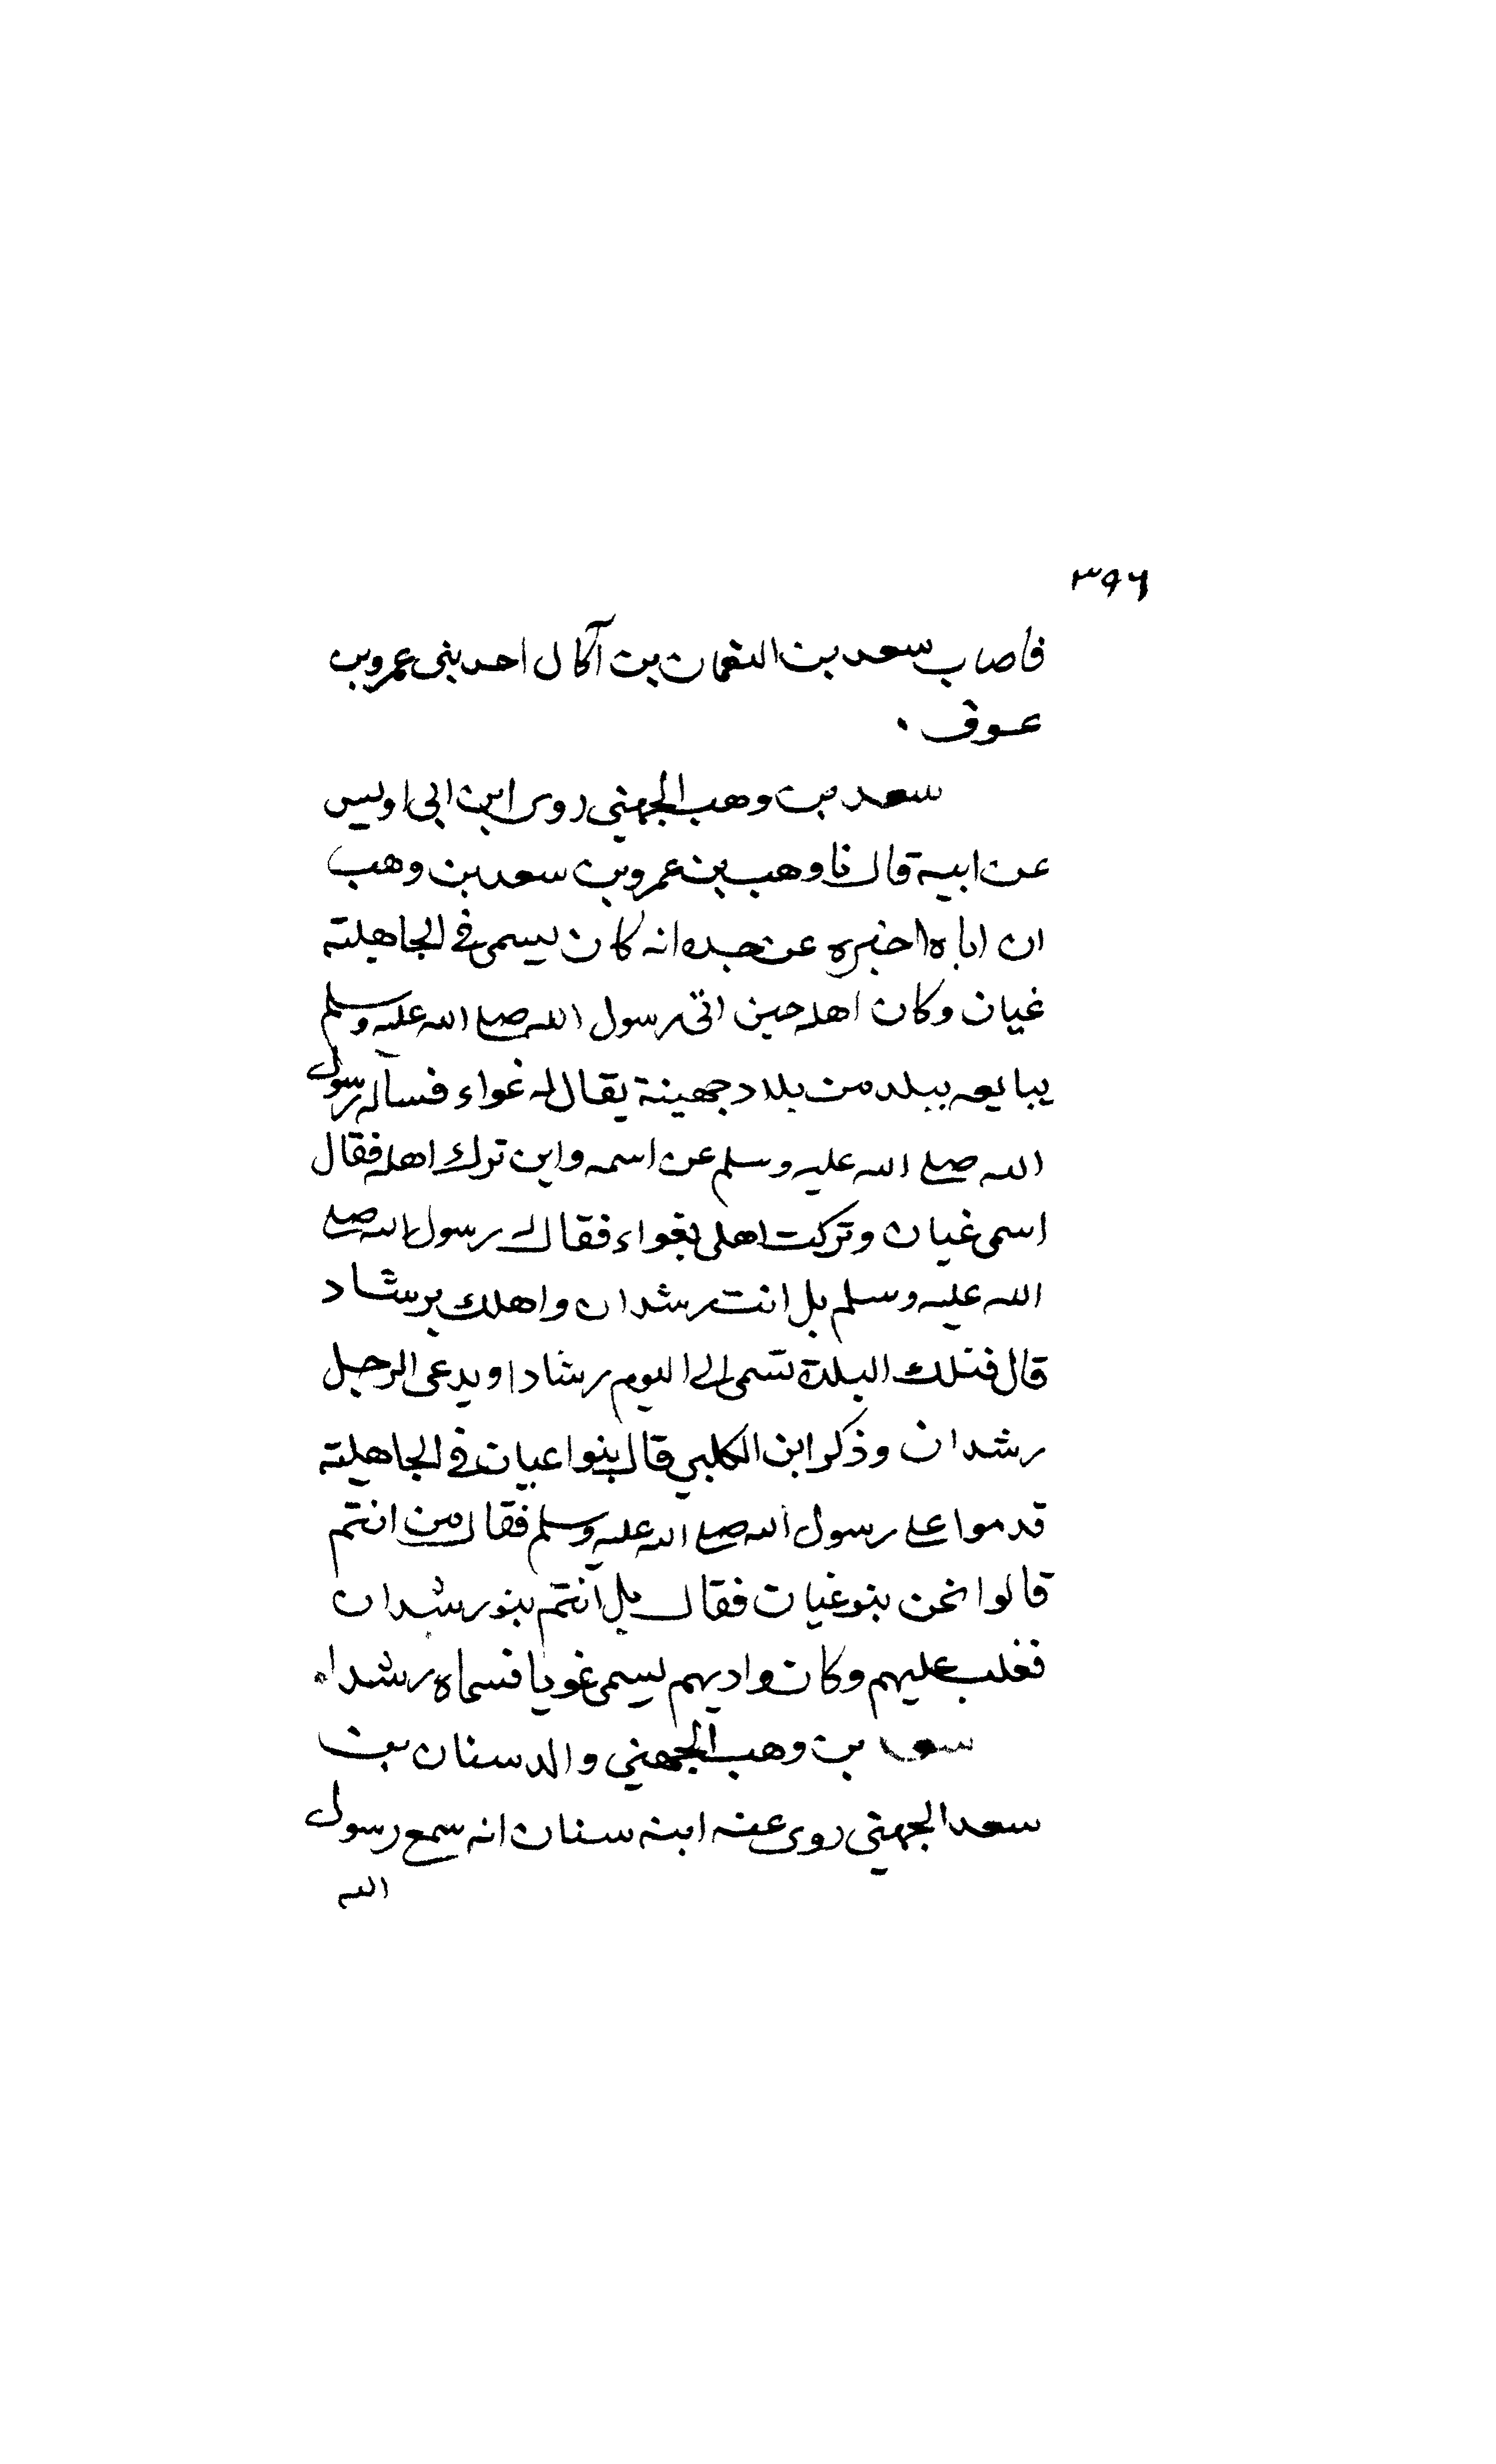 ٣٩٦
فاصاب سعد بن النعمان بن آكال احد بنى عمرو بن
عوف .
سعد بن وهب الجهني روى ابن ابى اويس
عن ابيه قال نا وهب بن عمرو بن سعد بن وهب
ان اباه اخبره عن جده انه كان يسمى في الجاهلية
غيان وكان اهله حين اتى رسول الله صلى الله عليه وسلم
يبايعه ببلد من بلاد جهينة يقال له غواء فسأله رسول
الله صلى الله عليه وسلم عن اسمه واين ترك اهله فقال
اسمى غيان وتركت اهلى بغواء فقال له رسول الله صلى
الله عليه وسلم بل انت رشدان واهلك برشاد
قال فتلك البلدة تسمى الى اليوم رشادا ويدعى الرجل
رشدان وذكر ابن الكلبي قال بنوا غيان في الجاهلية
قدموا على رسول الله صلى الله عليه وسلم فقال من انتم
قالوا نحن بنو غيان فقال بل انتم بنو رشدان
فغلب عليهم وكان واديهم يسمى غويا فسماه رشدا.
سعد بن وهب الجهني والد سنان بن
سعد الجهني روى عنه ابنه سنان انه سمع رسول
الله